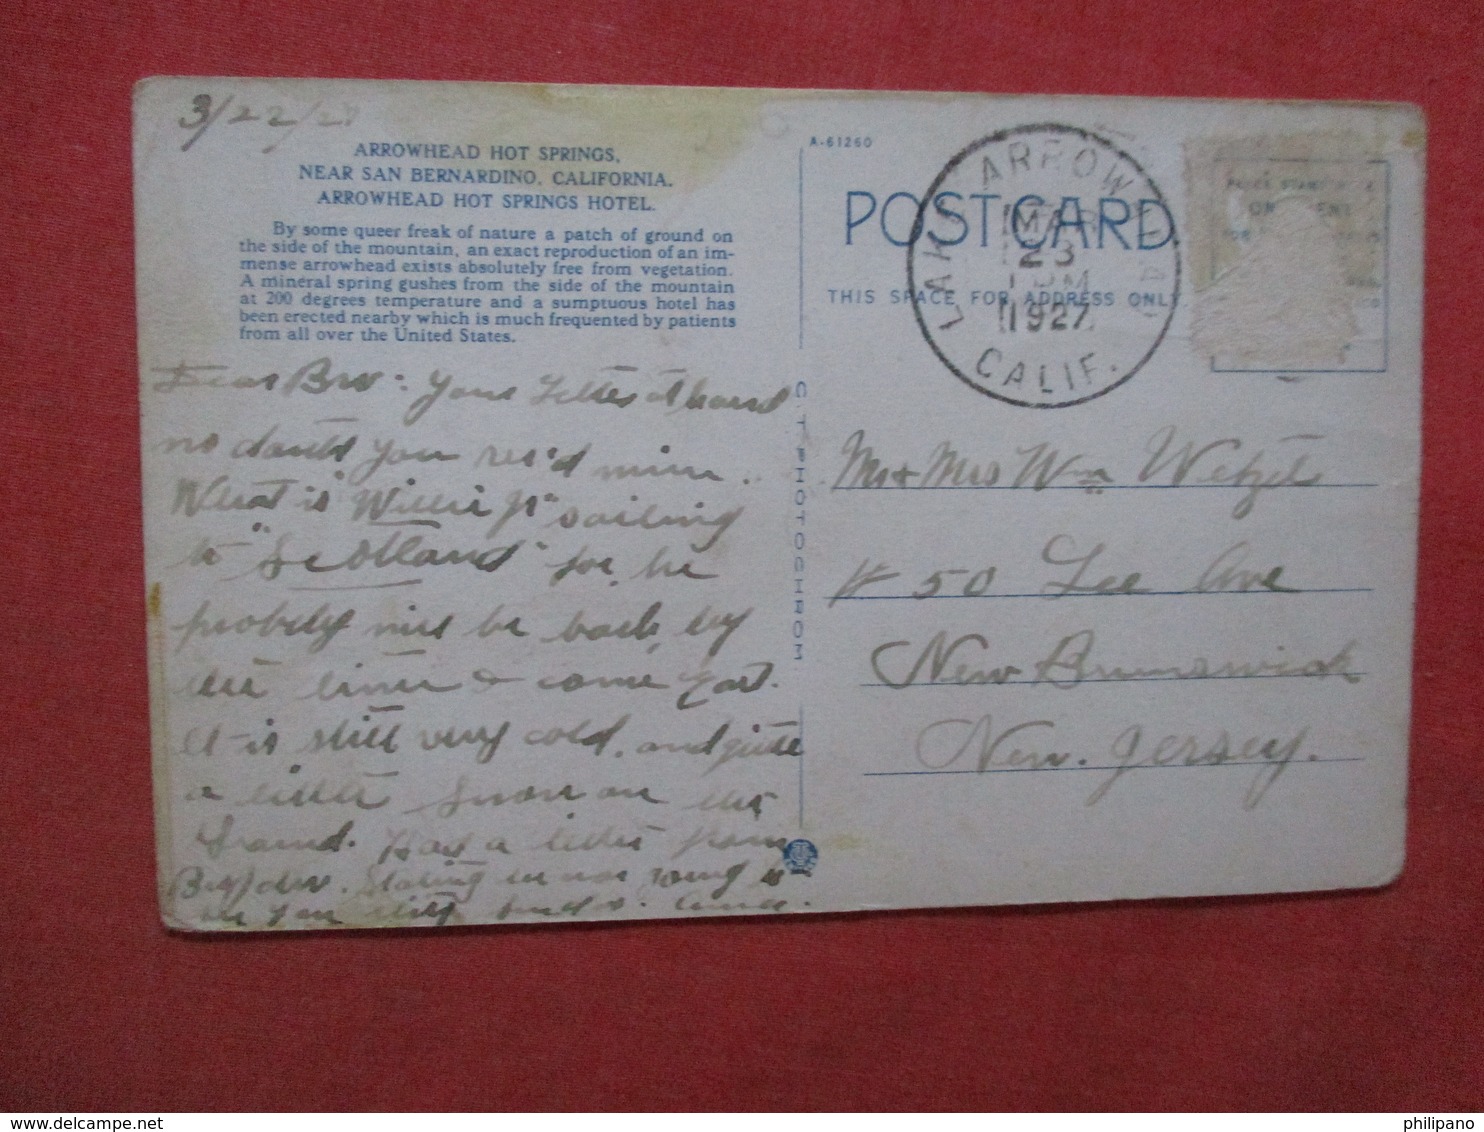 3/22/27
ARROWHEAD HOT SPRINGS,
NEAR SAN BERNARDINO, CALIFORNIA.
ARROWHEAD HOT SPRINGS HOTEL.
By some queer freak of nature a patch of ground on
the side of the mountain, an exact reproduction of an im-
mense arrowhead exists absolutely free from vegetation.
A mineral spring gushes from the side of the mountain
at 200 degrees temperature and a sumptuous hotel has
been erected nearby which is much frequented by patients
from all over the United States.
Dear Bro: Your Letter at hand
no doubt you rec'd mine.
What is "Willie Jr" sailing
to "Scotland" for, he
probely will be back by
the time & come East.
It is still very cold, and quite
a little snow on the
Ground. Had a letter from
Stating
C. T. PHOTOCHROM
A-61260
POST CARD
THIS SPACE FOR ADDRESS ONLY.
LAKE ARROWHEAD
MAR
23
PM
1927
CALIF.
Mr + Mrs Wm Wetzel
# 50 Lee Ave
New Brunswick
New. Jersey.
philipano